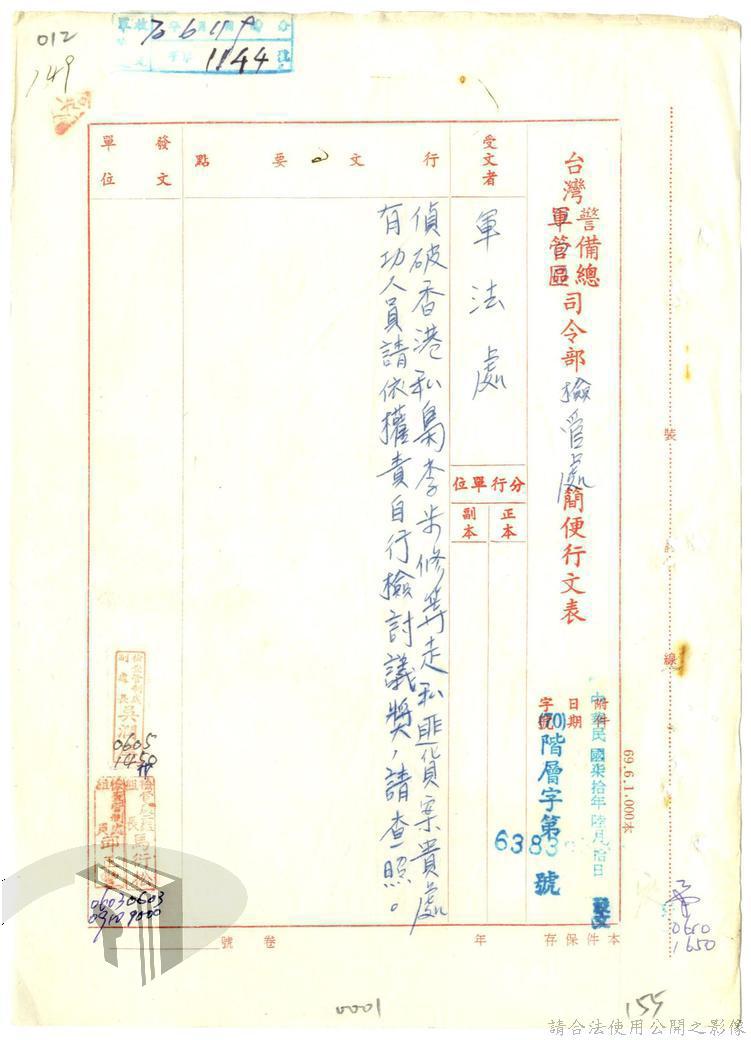 012
149
70 6 11 9
1144
台灣警備總軍管區司令部檢管處簡便行文表
附件
日期 中華民國柒拾年陸月拾日 發文
字號 (70)階層字第6383號
受文者
軍法處
分行單位
正本
副本
行文要點
偵破香港私梟李步修等走私匪貨案貴處
有功人員請依權責自行檢討議獎，請查照。
發文單位
檢查管制處
副處長 吳
0605
1450
組長 馬行
0603
0900
0603
0910
0610
1650
本件保存 年
卷號
裝
訂
線
69.6.1,000本
0001
155
請合法使用公開之影像